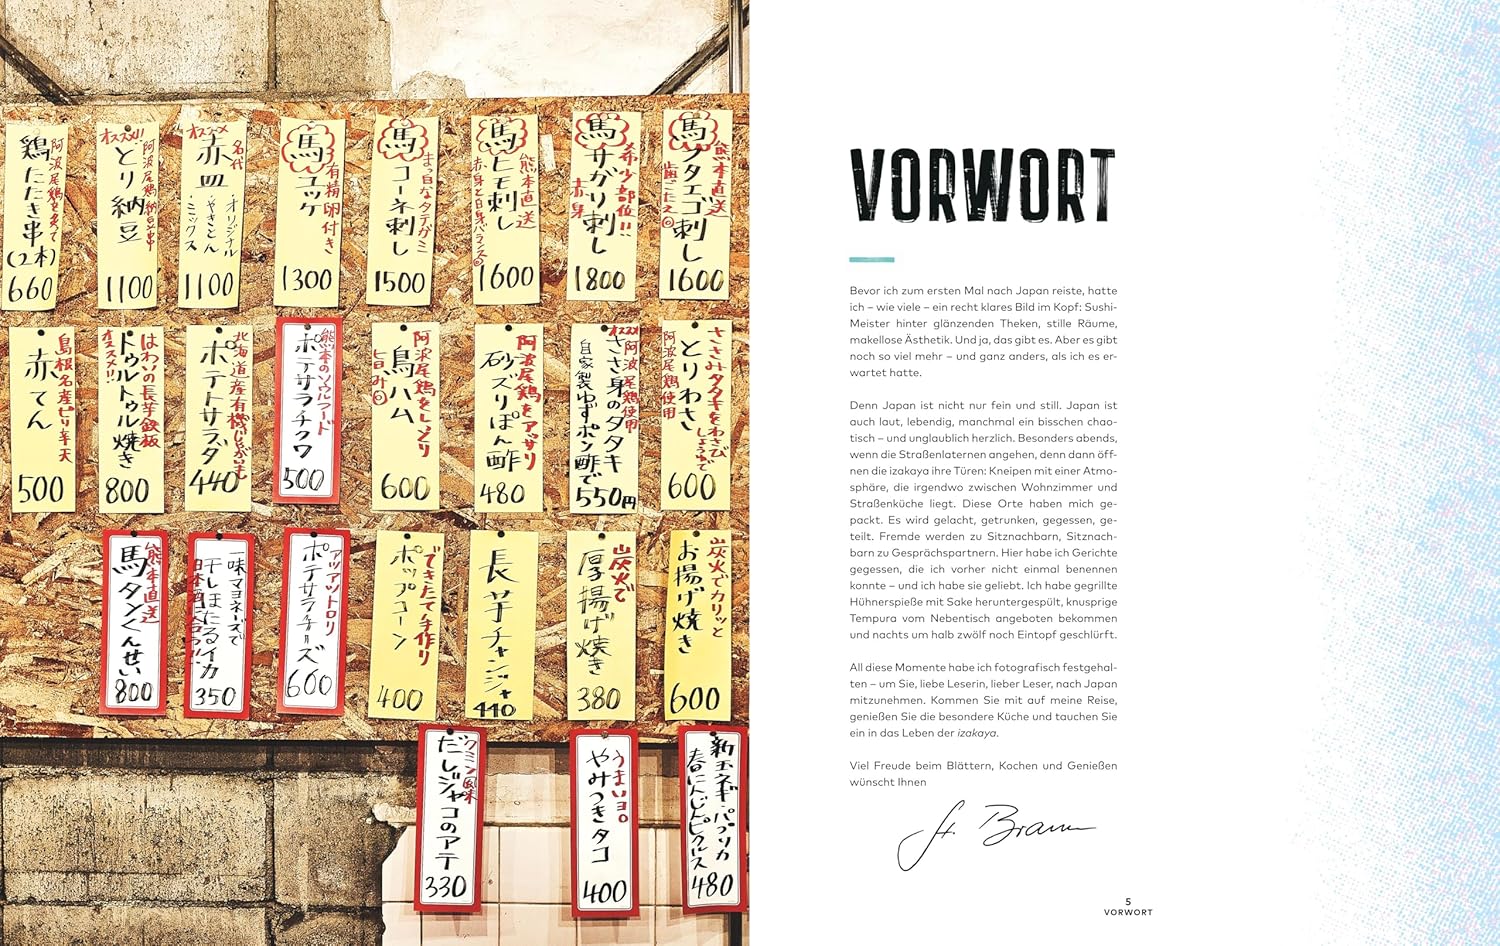 阿波尾鶏を使って
鶏たたき串
(2本)
660
オススメ!!
阿波尾鶏納豆串
とり納豆
1100
オススメ
名代
赤皿
オリジナル
やきとん
ミックス
1100
馬
ユッケ
有精卵付き
1300
馬
コーネ刺し
まっ白なタテガミ
1500
馬
ヒモ刺し
熊本直送
赤身と白身バランス◎
1600
馬
サガリ刺し
希少部位!!
赤身
1800
馬
フタエゴ刺し
熊本直送
歯ごたえ◎
1600
島根名産ピリ辛天
赤てん
500
はわいの長芋鉄板
トゥルトゥル焼き
オススメ!!
800
北海道産有機じゃがいも
ポテトサラダ
440
熊本のソウルフード
ポテサラチクワ
500
阿波尾鶏をしっとり
鳥ハム
旨み◎
600
阿波尾鶏をアッサリ
砂ズリぽん酢
480
オススメ
阿波尾鶏使用
ささ身のタタキ
自家製ゆずポン酢で
550円
ささみタタキをわさび
しょうゆで
とりわさ
阿波尾鶏使用
600
熊本直送
馬タンくんせい
800
一味マヨネーズで
干しほたるイカ
日本酒に合う!!
350
アツアツトロリ
ポテサラチーズ
600
できたて手作り
ポップコーン
400
長芋チャンジャ
440
炭火で
厚揚げ焼き
380
炭火でカリッと
お揚げ焼き
600
クミン風味
だしジャコのアテ
330
うまいヨロ
やみつきタコ
400
新玉ネギ・パプリカ
春にんじんピクルス
480
VORWORT
Bevor ich zum ersten Mal nach Japan reiste, hatte
ich – wie viele – ein recht klares Bild im Kopf: Sushi-
Meister hinter glänzenden Theken, stille Räume,
makellose Ästhetik. Und ja, das gibt es. Aber es gibt
noch so viel mehr – und ganz anders, als ich es er-
wartet hatte.
Denn Japan ist nicht nur fein und still. Japan ist
auch laut, lebendig, manchmal ein bisschen chao-
tisch – und unglaublich herzlich. Besonders abends,
wenn die Straßenlaternen angehen, denn dann öff-
nen die izakaya ihre Türen: Kneipen mit einer Atmo-
sphäre, die irgendwo zwischen Wohnzimmer und
Straßenküche liegt. Diese Orte haben mich ge-
packt. Es wird gelacht, getrunken, gegessen, ge-
teilt. Fremde werden zu Sitznachbarn, Sitznach-
barn zu Gesprächspartnern. Hier habe ich Gerichte
gegessen, die ich vorher nicht einmal benennen
konnte – und ich habe sie geliebt. Ich habe gegrillte
Hühnerspieße mit Sake heruntergespült, knusprige
Tempura vom Nebentisch angeboten bekommen
und nachts um halb zwölf noch Eintopf geschlürft.
All diese Momente habe ich fotografisch festgehal-
ten – um Sie, liebe Leserin, lieber Leser, nach Japan
mitzunehmen. Kommen Sie mit auf meine Reise,
genießen Sie die besondere Küche und tauchen Sie
ein in das Leben der izakaya.
Viel Freude beim Blättern, Kochen und Genießen
wünscht Ihnen
St. Braun
5
VORWORT